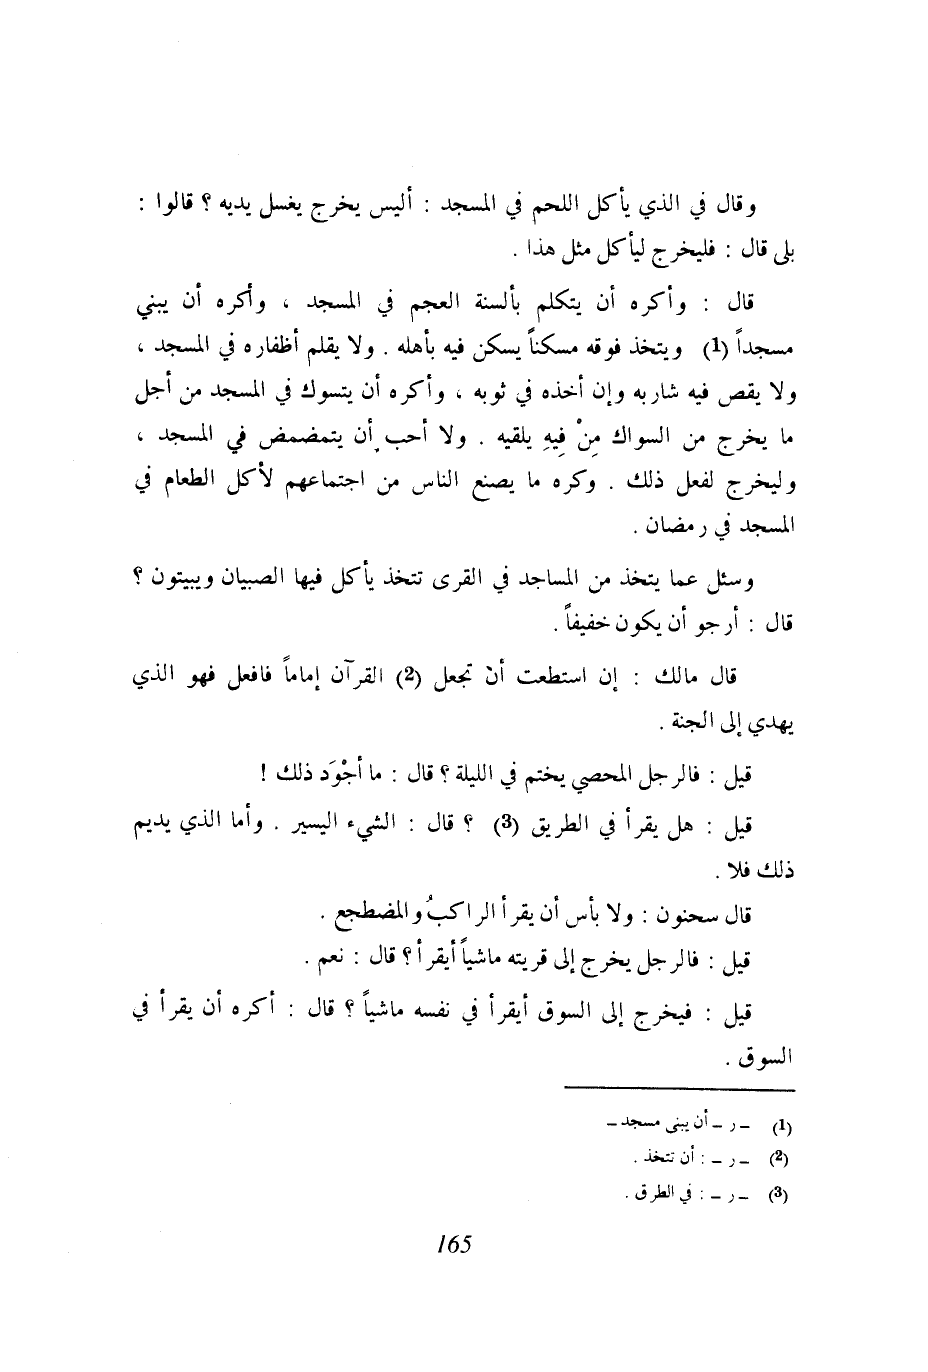 وقال في الذي يأكل اللحم في المسجد : أليس يخرج يغسل يديه ؟ قالوا :
بلى قال : فليخرج ليأكل مثل هذا .
قال : وأكره أن يتكلم بألسنة العجم في المسجد ، وأكره أن يبني
مسجداً (1) ويتخذ فوقه مسكناً يسكن فيه بأهله . ولا يقلم أظفاره في المسجد ،
ولا يقص فيه شاربه وإن أخذه في ثوبه ، وأكره أن يتسوك في المسجد من أجل
ما يخرج من السواك مِنْ فِيهِ يلقيه . ولا أحب أن يتمضمض في المسجد ،
وليخرج لفعل ذلك . وكره ما يصنع الناس من اجتماعهم لأكل الطعام في
المسجد في رمضان .
وسئل عما يتخذ من المساجد في القرى تتخذ يأكل فيها الصبيان ويبيتون ؟
قال : أرجو أن يكون خفيفاً .
قال مالك : إن استطعت أن تجعل (2) القرآن إماماً فافعل فهو الذي
يهدي إلى الجنة .
قيل : فالرجل المحصي يختم في الليلة ؟ قال : ما أجْوَد ذلك !
قيل : هل يقرأ في الطريق (3) ؟ قال : الشيء اليسير . وأما الذي يديم
ذلك فلا .
قال سحنون : ولا بأس أن يقرأ الراكبُ والمضطجع .
قيل : فالرجل يخرج إلى قريته ماشياً أيقرأ ؟ قال : نعم .
قيل : فيخرج إلى السوق أيقرأ في نفسه ماشياً ؟ قال : أكره أن يقرأ في
السوق .
(1) ـ ر ـ أن يبنى مسجد ـ
(2) ـ ر ـ : أن تتخذ .
(3) ـ ر ـ : في الطرق .
165